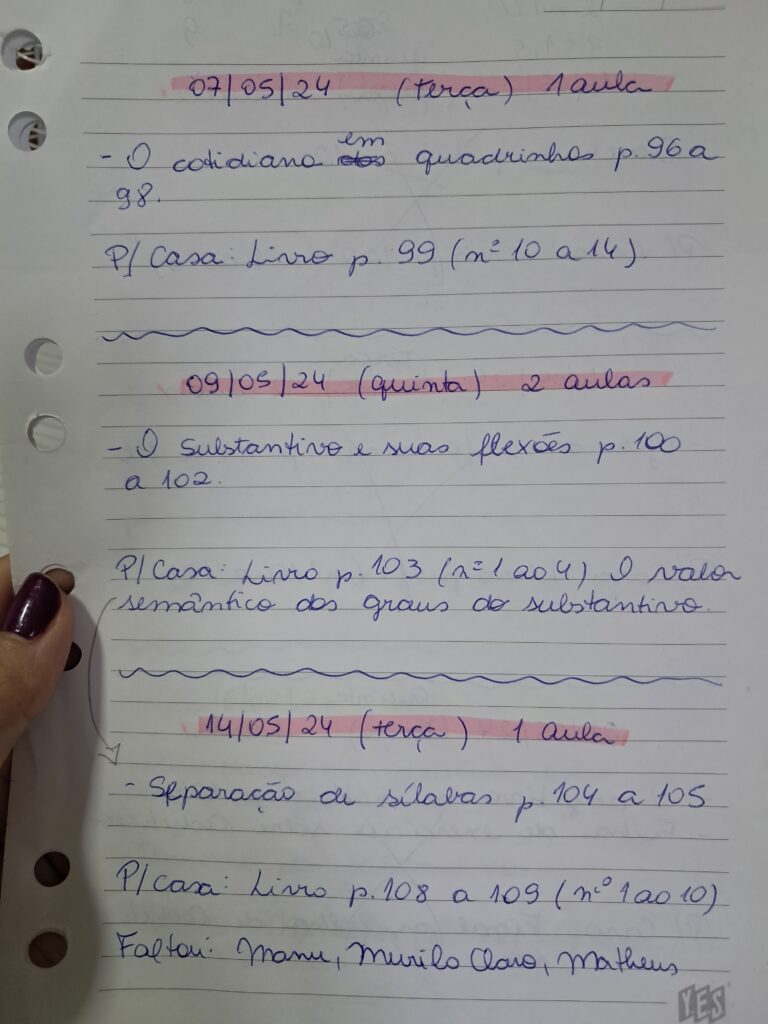 07/05/24 (terça) 1 aula
- O cotidiano em quadrinhos p. 96 a
98.
P/ Casa: Livro p. 99 (nº 10 a 14).
09/05/24 (quinta) 2 aulas
- O substantivo e suas flexões p. 100
a 102.
P/ Casa: Livro p. 103 (nº 1 ao 4) O valor
semântico dos graus do substantivo.
14/05/24 (terça) 1 aula
- Separação de sílabas p. 104 a 105
P/ Casa: Livro p. 108 a 109 (nº 1 ao 10)
Faltou: Manu, Murilo Claro, Matheus
YES